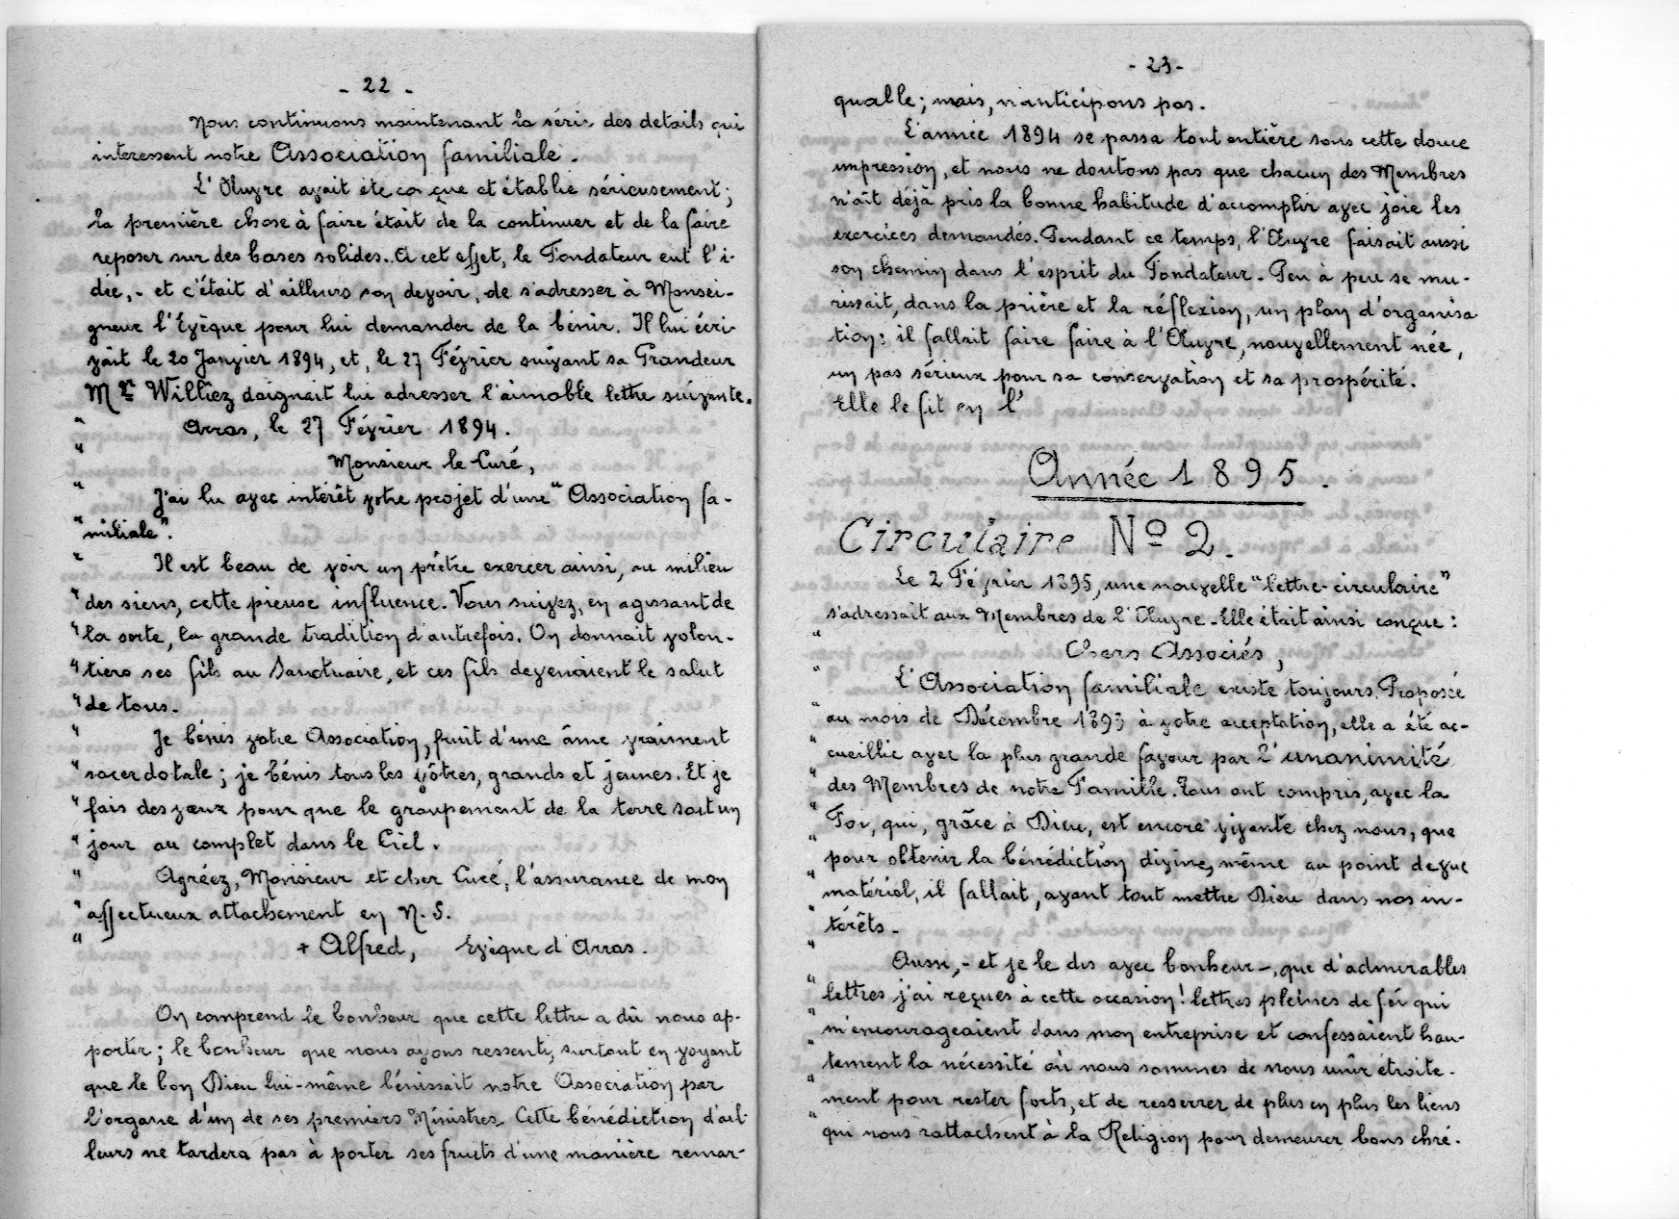 - 22 -
Nous continuons maintenant la série des détails qui
intéressent notre Association familiale.
L'Œuvre avait été conçue et établie sérieusement;
la première chose à faire était de la continuer et de la faire
reposer sur des bases solides. A cet effet, le Fondateur eut l'i-
dée, - et c'était d'ailleurs son devoir, de s'adresser à Monsei-
gneur l'Evêque pour lui demander de la bénir. Il lui écri-
vait le 20 Janvier 1894, et, le 27 Février suivant sa Grandeur
Mgr Williez daignait lui adresser l'aimable lettre suivante.
" Arras, le 27 Février 1894.
" Monsieur le Curé,
" J'ai lu avec intérêt votre projet d'une "Association fa-
" miliale".
" Il est beau de voir un prêtre exercer ainsi, au milieu
" des siens, cette pieuse influence. Vous suivez, en agissant de
" la sorte, la grande tradition d'autrefois. On donnait volon-
" tiers ses fils au Sanctuaire, et ces fils devenaient le salut
" de tous.
" Je bénis votre Association, fruit d'une âme vraiment
" sacerdotale; je bénis tous les vôtres, grands et jeunes. Et je
" fais des vœux pour que le groupement de la terre soit un
" jour au complet dans le Ciel.
" Agréez, Monsieur et cher Curé, l'assurance de mon
" affectueux attachement en N. S.
" + Alfred, Evêque d'Arras.
On comprend le bonheur que cette lettre a dû nous ap-
porter; le bonheur que nous avons ressenti, surtout en voyant
que le bon Dieu lui-même bénissait notre Association par
l'organe d'un de ses premiers Ministres. Cette bénédiction d'ail-
leurs ne tardera pas à porter ses fruits d'une manière remar-
- 23 -
quable; mais, n'anticipons pas.
L'année 1894 se passa tout entière sous cette douce
impression, et nous ne doutons pas que chacun des Membres
n'ait déjà pris la bonne habitude d'accomplir avec joie les
exercices demandés. Pendant ce temps, l'Œuvre faisait aussi
son chemin dans l'esprit du Fondateur. Peu à peu se mu-
rissait, dans la prière et la réflexion, un plan d'organisa
tion: il fallait faire faire à l'Œuvre, nouvellement née,
un pas sérieux pour sa conservation et sa prospérité.
Elle le fit en l'
Année 1895.
Circulaire Nº 2.
Le 2 Février 1895, une nouvelle "lettre-circulaire"
s'adressait aux Membres de l'Œuvre. Elle était ainsi conçue:
" Chers Associés,
" L'Association familiale existe toujours. Proposée
" au mois de Décembre 1893 à votre acceptation, elle a été ac-
" cueillie avec la plus grande faveur par l'unanimité
" des Membres de notre Famille. Tous ont compris, avec la
" Foi, qui, grâce à Dieu, est encore vivante chez nous, que
" pour obtenir la bénédiction divine, même au point de vue
" matériel, il fallait, avant tout mettre Dieu dans nos in-
" térêts.
" Aussi, - et je le dis avec bonheur -, que d'admirables
" lettres j'ai reçues à cette occasion! lettres pleines de foi qui
" m'encourageaient dans mon entreprise et confessaient hau-
" tement la nécessité où nous sommes de nous unir étroite-
" ment pour rester forts, et de resserrer de plus en plus les liens
" qui nous rattachent à la Religion pour demeurer bons chré-